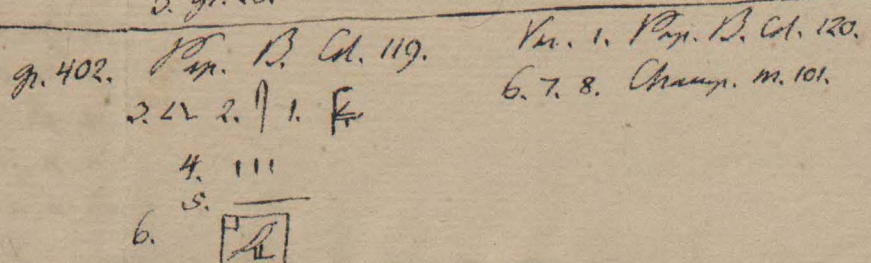 gr. 402. Pap. B. Col. 119.
3. 2. 1.
4.
5.
6.
Var. 1. Pap. B. Col. 120.
6. 7. 8. Champ. m. 101.